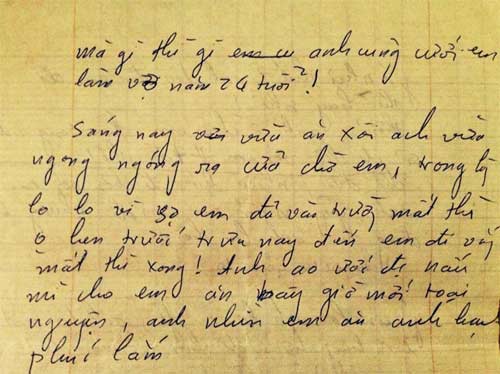 mà gì thì gì em anh cũng cưới em
làm vợ năm 24 tuổi !
Sáng nay vừa ăn xôi anh vừa
ngong ngóng ra cửa chờ em, trong lòng
lo lo vì sợ em đã vào trường mất thì
o hẹn trước trưa nay đến em đi vắng
mất thì xong ! Anh ao ước đc nấu
mì cho em ăn bây giờ mới toại
nguyện, anh nhìn em ăn anh hạnh
phúc lắm